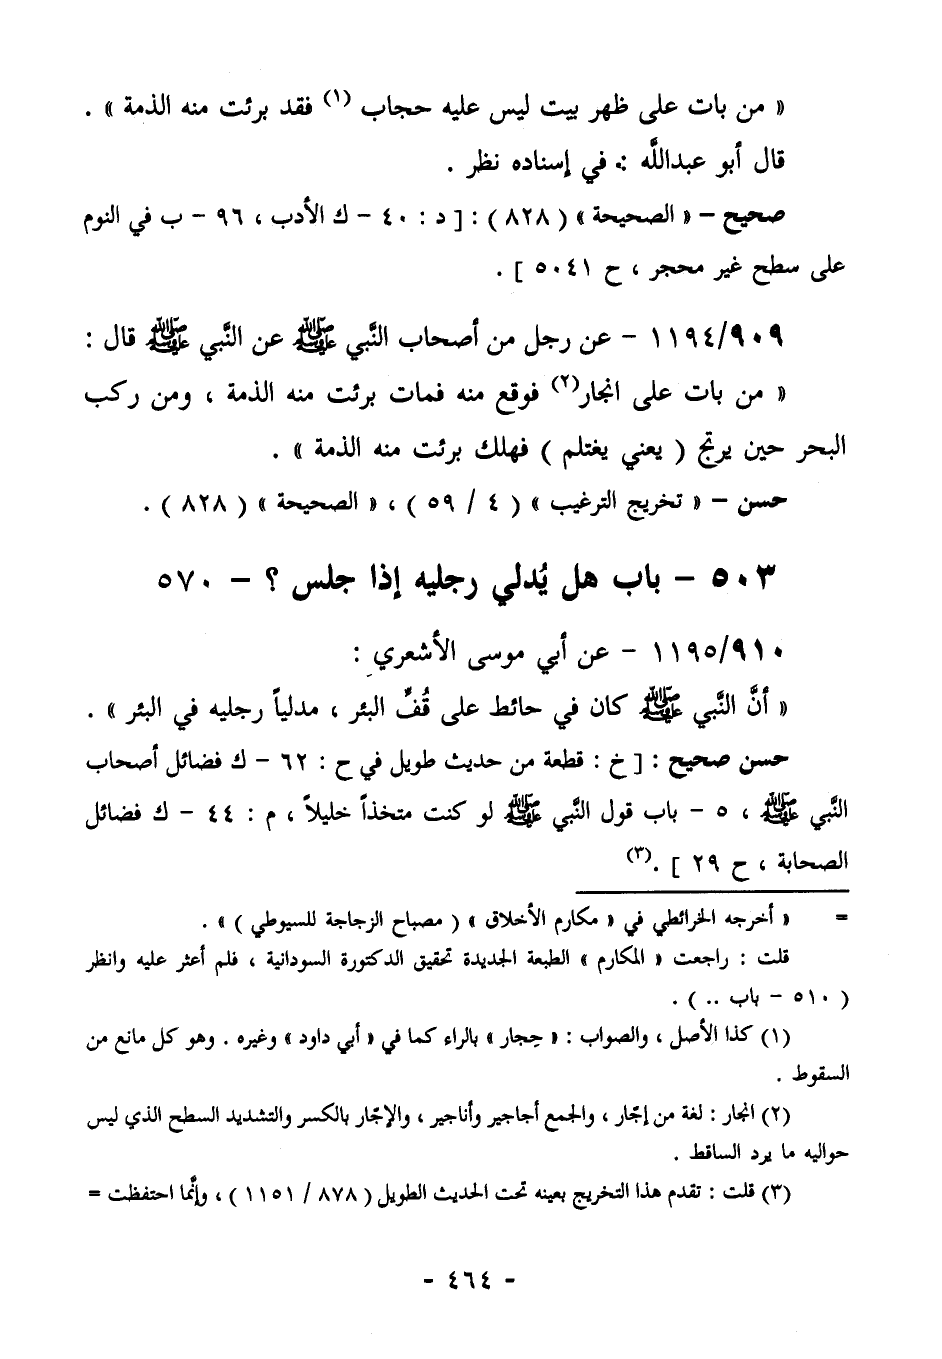 « من بات على ظهر بيت ليس عليه حجاب (١) فقد برئت منه الذمة » .
قال أبو عبدالله : في إسناده نظر .
صحيح – « الصحيحة » ( ٨٢٨ ) : [ د : ٤٠ – ك الأدب ، ٩٦ – ب في النوم
على سطح غير محجر ، ح ٥٠٤١ ] .
١١٩٤/٩٠٩ – عن رجل من أصحاب النَّبي ﷺ عن النَّبي ﷺ قال :
« من بات على انجار(٢) فوقع منه فمات برئت منه الذمة ، ومن ركب
البحر حين يرتج ( يعني يغتلم ) فهلك برئت منه الذمة » .
حسن – « تخريج الترغيب » ( ٤ / ٥٩ ) ، « الصحيحة » ( ٨٢٨ ) .
٥٠٣ – باب هل يُدلي رجليه إذا جلس ؟ – ٥٧٠
١١٩٥/٩١٠ – عن أبي موسى الأشعري :
« أنَّ النَّبي ﷺ كان في حائط على قُفِّ البئر ، مدلياً رجليه في البئر » .
حسن صحيح : [ خ : قطعة من حديث طويل في ح : ٦٢ – ك فضائل أصحاب
النَّبي ﷺ ، ٥ – باب قول النَّبي ﷺ لو كنت متخذاً خليلاً ، م : ٤٤ – ك فضائل
الصحابة ، ح ٢٩ ] .(٣)
= « أخرجه الخرائطي في « مكارم الأخلاق » ( مصباح الزجاجة للسيوطي ) » .
قلت : راجعت « المكارم » الطبعة الجديدة تحقيق الدكتورة السودانية ، فلم أعثر عليه وانظر
( ٥١٠ – باب .. ) .
(١) كذا الأصل ، والصواب : « حِجار » بالراء كما في « أبي داود » وغيره . وهو كل مانع من
السقوط .
(٢) انجار : لغة من إجّار ، والجمع أجاجير وأناجير ، والإجّار بالكسر والتشديد السطح الذي ليس
حواليه ما يرد الساقط .
(٣) قلت : تقدم هذا التخريج بعينه تحت الحديث الطويل ( ٨٧٨ / ١١٥١ ) ، وإنَّما احتفظت =
- ٤٦٤ -